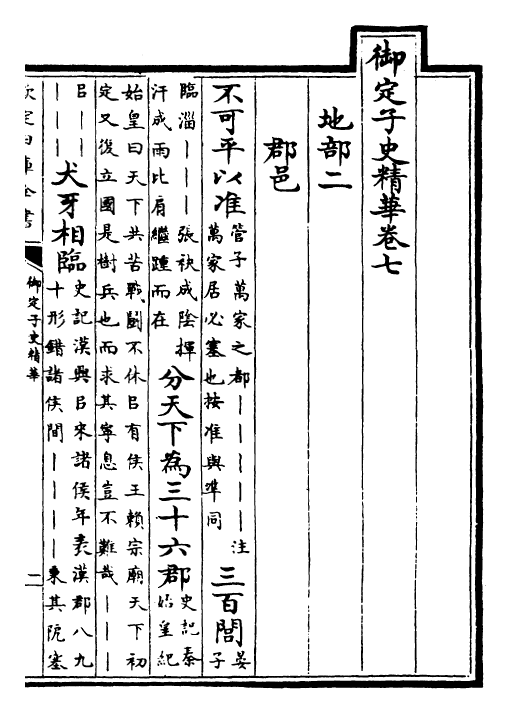 御定子史精華卷七
地部二
郡邑
不可平以准
管子萬家之都丨丨丨丨丨注
萬家居必塞也按准與準同
三百閭
晏
子
臨淄丨丨丨張袂成陰揮
汗成雨比肩繼踵而在
分天下為三十六郡
史記秦
始皇紀
始皇曰天下共苦戰鬭不休㠯有侯王賴宗廟天下初
定又復立國是樹兵也而求其寧息豈不難哉丨丨丨
㠯丨丨丨
丨丨丨
犬牙相臨
史記漢興㠯來諸侯年表漢郡八九
十形錯諸侯間丨丨丨丨秉其阨塞
欽定四庫全書
御定子史精華
二